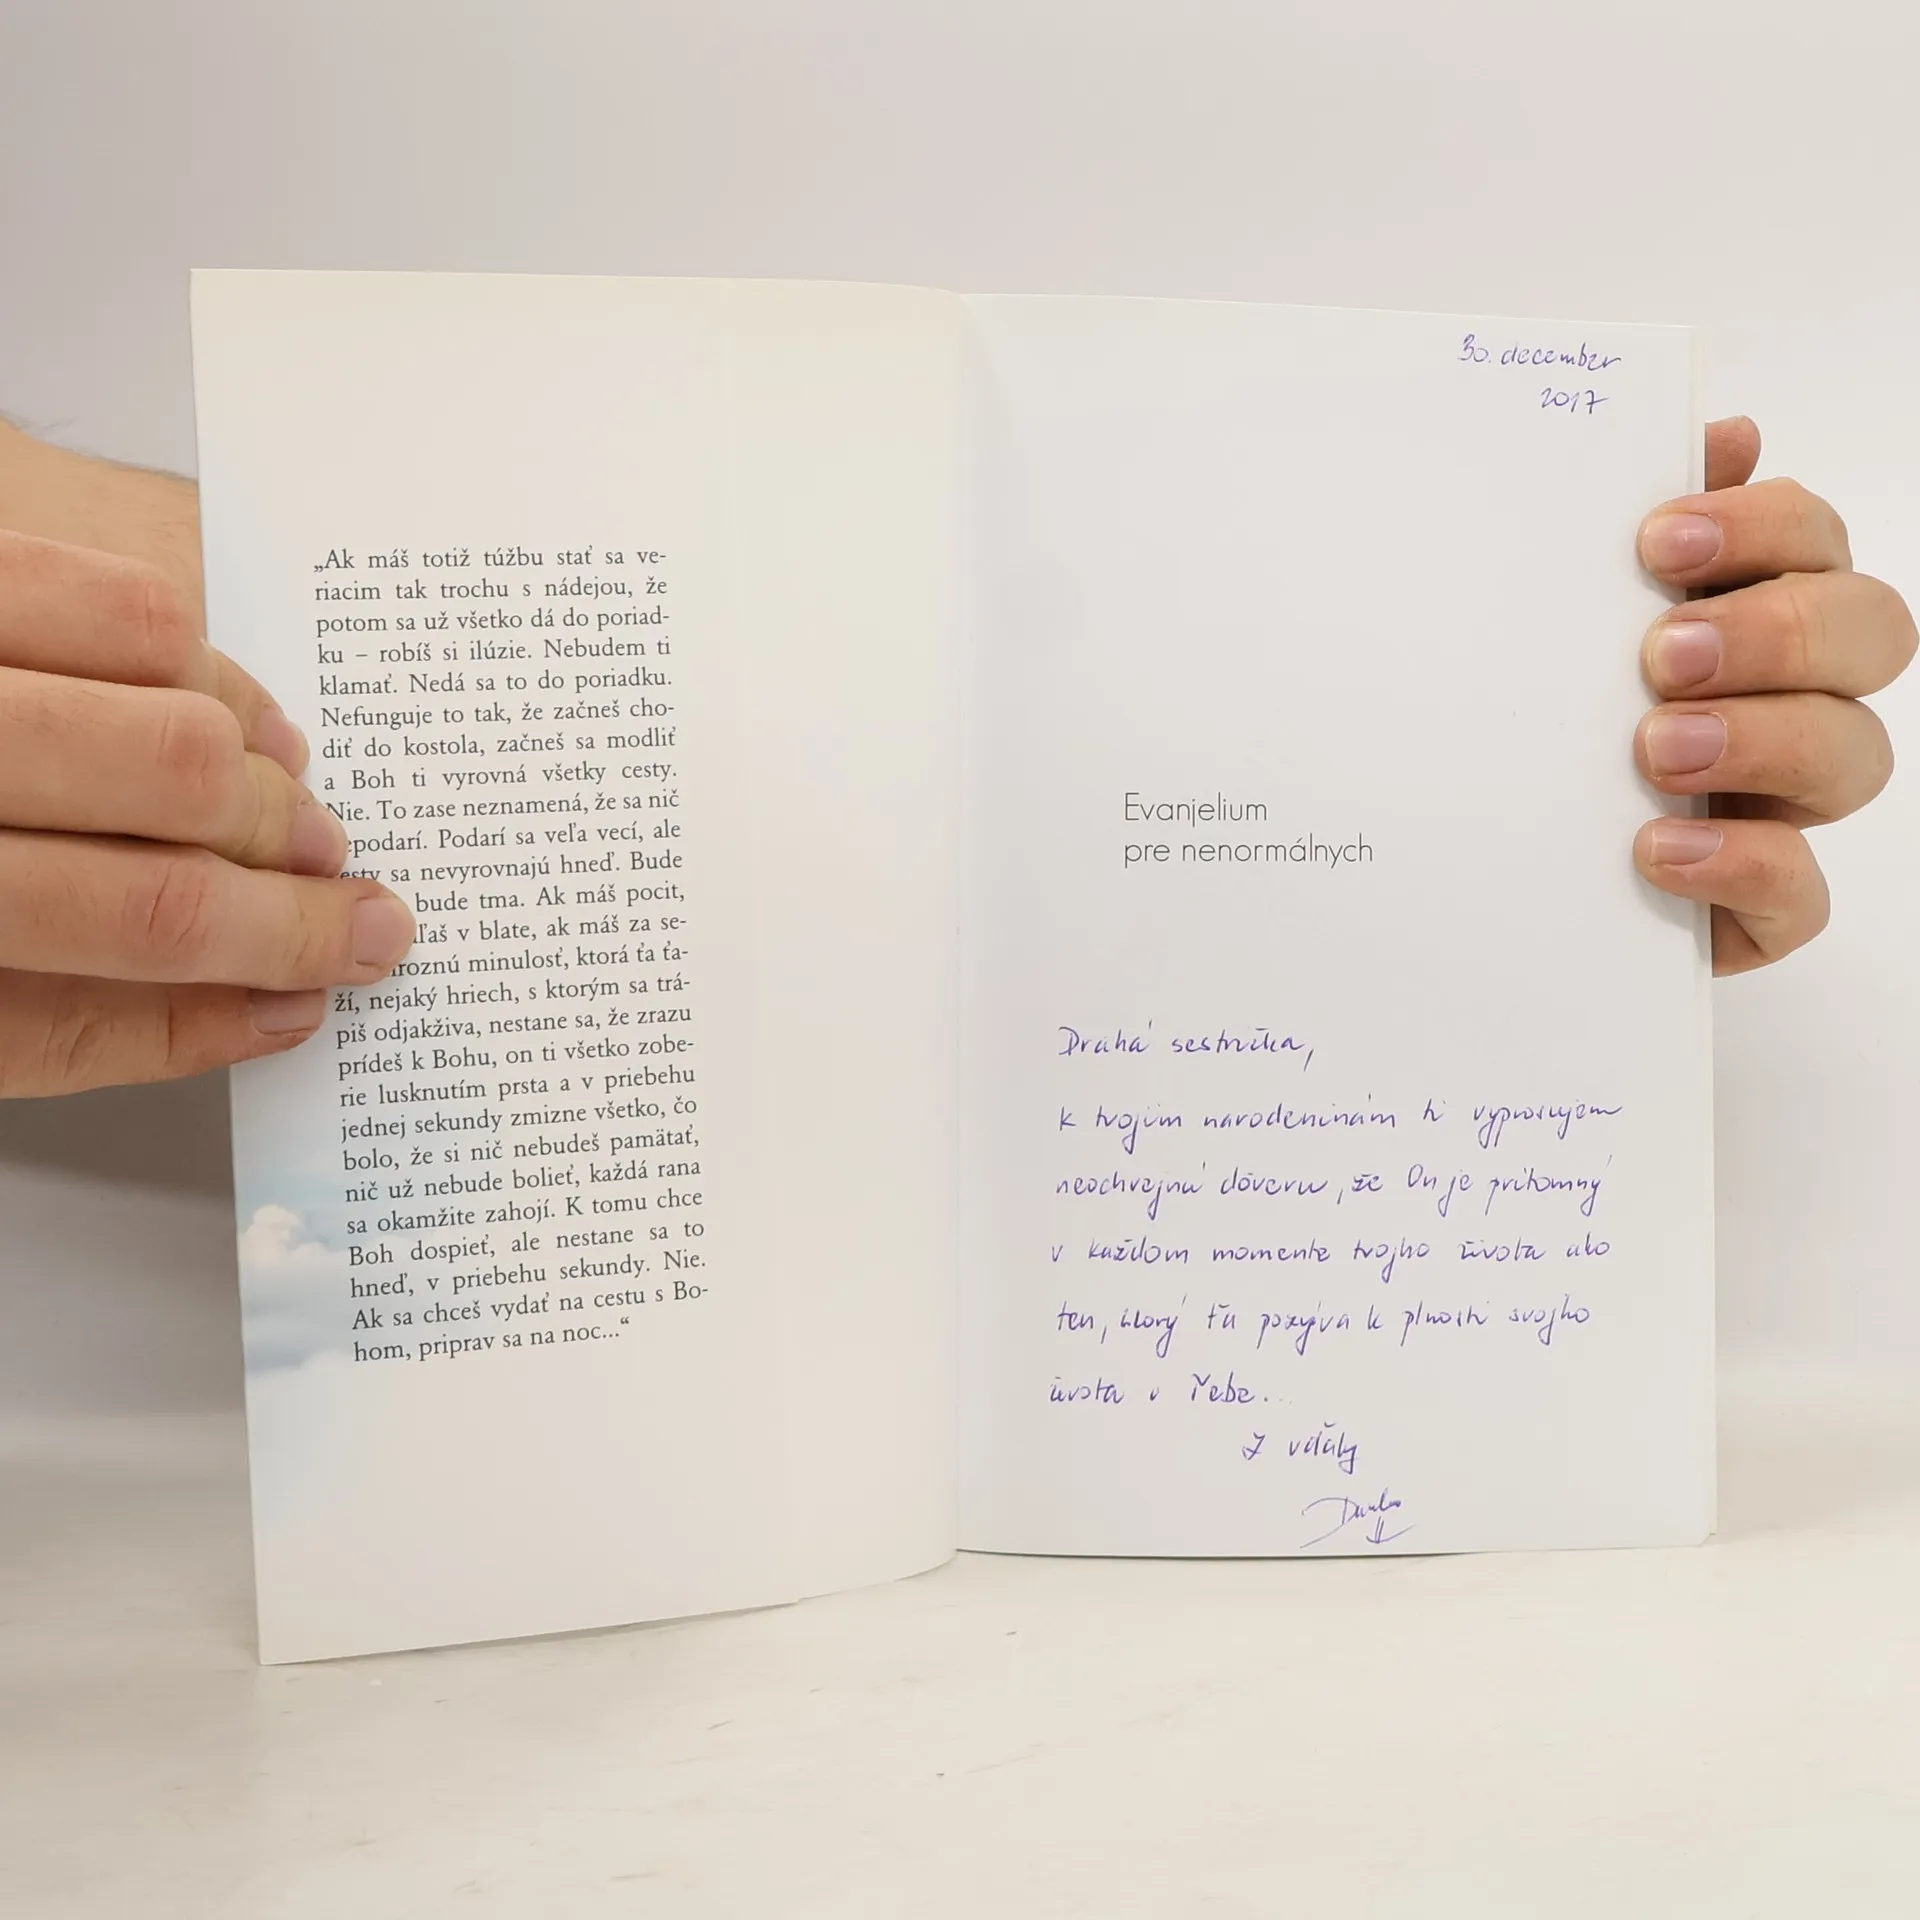 „Ak máš totiž túžbu stať sa ve-
riacim tak trochu s nádejou, že
potom sa už všetko dá do poriad-
ku – robíš si ilúzie. Nebudem ti
klamať. Nedá sa to do poriadku.
Nefunguje to tak, že začneš cho-
diť do kostola, začneš sa modliť
a Boh ti vyrovná všetky cesty.
Nie. To zase neznamená, že sa nič
epodarí. Podarí sa veľa vecí, ale
esty sa nevyrovnajú hneď. Bude
bude tma. Ak máš pocit,
ľaš v blate, ak máš za se-
roznú minulosť, ktorá ťa ťa-
ží, nejaký hriech, s ktorým sa trá-
piš odjakživa, nestane sa, že zrazu
prídeš k Bohu, on ti všetko zobe-
rie lusknutím prsta a v priebehu
jednej sekundy zmizne všetko, čo
bolo, že si nič nebudeš pamätať,
nič už nebude bolieť, každá rana
sa okamžite zahojí. K tomu chce
Boh dospieť, ale nestane sa to
hneď, v priebehu sekundy. Nie.
Ak sa chceš vydať na cestu s Bo-
hom, priprav sa na noc...“
30. december
2017
Evanjelium
pre nenormálnych
Drahá sestrička,
k tvojim narodeninám ti vyprosujem
neochvejnú dôveru, že On je prítomný
v každom momente tvojho života ako
ten, ktorý ťa pozýva k plnosti svojho
života v Tebe...
Z vďaky